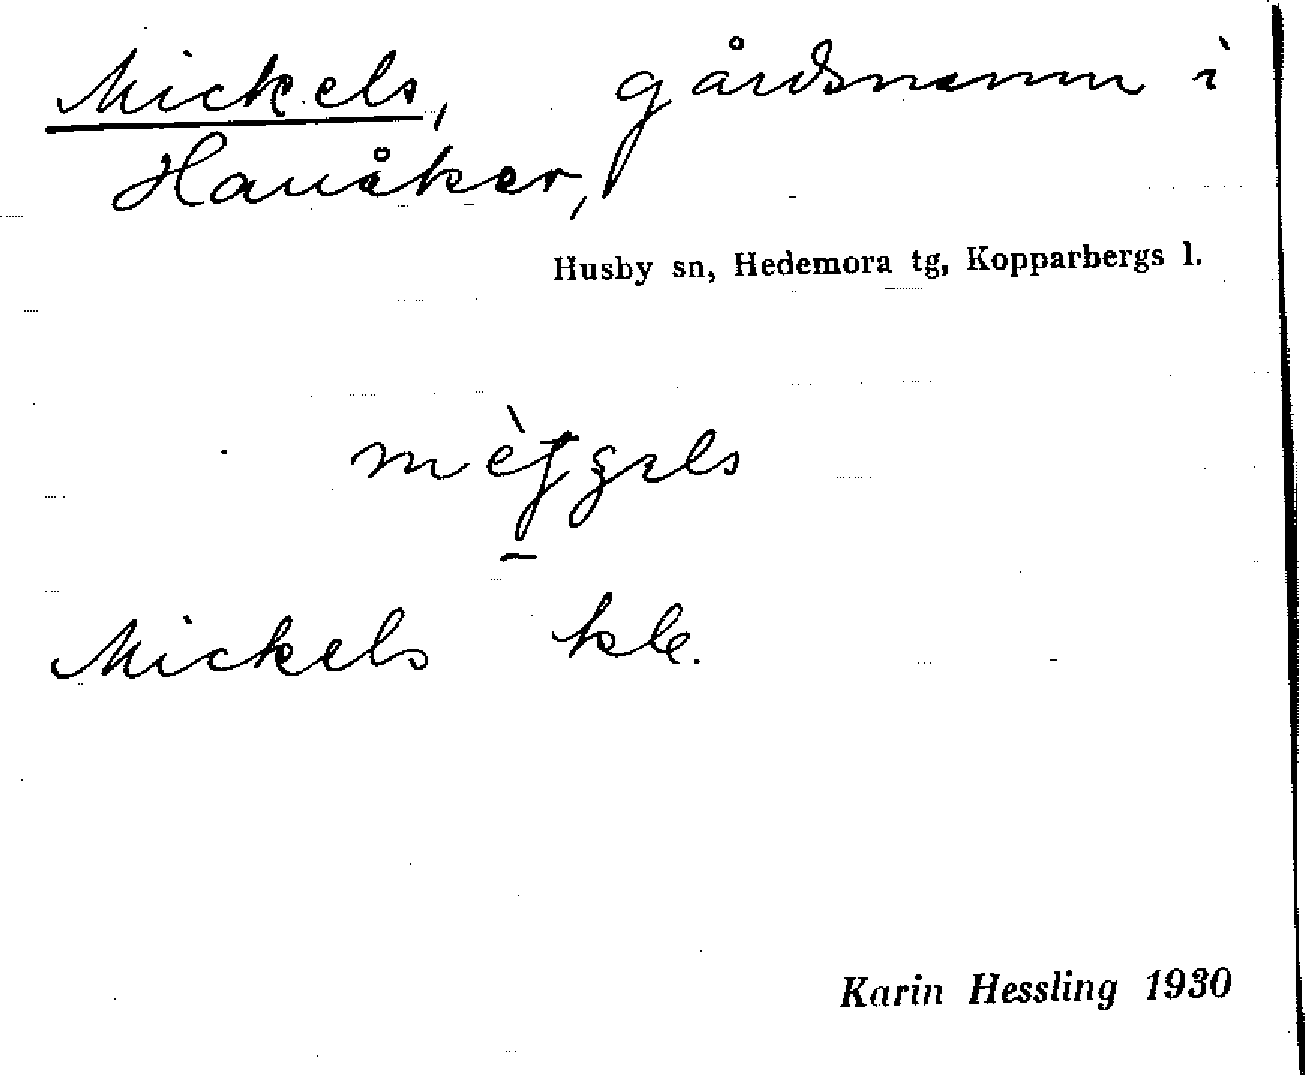 Mickels, gårdsnamn i
Hanåker,
Husby sn, Hedemora tg, Kopparbergs l.
Mickels kle.
Karin Hessling 1930